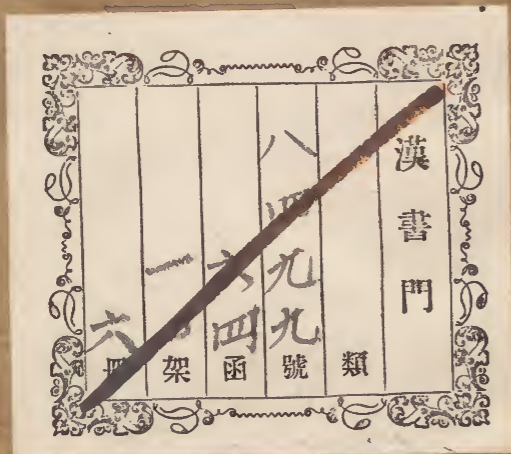 漢書門
類
八四九九號
六四函
一架
六冊